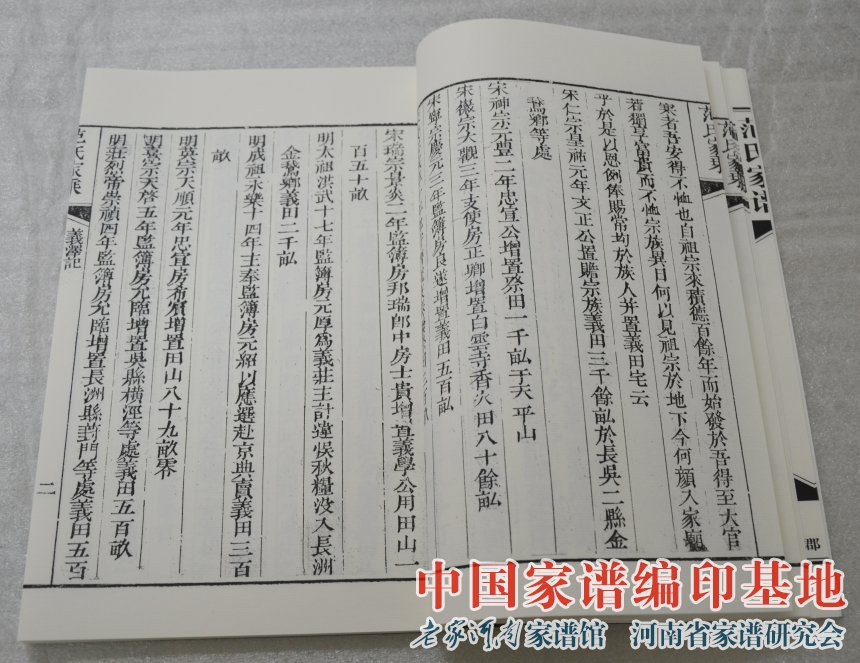 范氏家譜
范氏家乘
范氏家乘
衆者吾安得不恤也自祖宗來積德百餘年而始發於吾得至大官
若獨享富貴而不恤宗族異日何以見祖宗於地下今何顏入家廟
乎於是以恩例俸賜常均於族人并置義田宅云
宋仁宗皇祐元年文正公置贍宗族義田三千餘畝於長吳二縣金
鵞鄉等處
宋神宗元豐二年忠宣公增置祭田一千畝于天平山
宋徽宗大觀三年支使房正卿增置白雲寺香火田八十餘畝
宋寧宗慶元三年監簿房良遂增置義田五百畝
宋端宗景炎二年監簿房邦瑞郎中房士貴增置義學公用田山一
百五十畝
明太祖洪武十七年監簿房元厚為義莊主計違悞秋糧没入長洲
金鵞鄉義田二千畝
明成祖永樂十四年主奉監簿房元紹以應選赴京典賣義田三百
畝
明英宗天順元年忠宣房希賓增置田山八十九畝零
明熹宗天啓五年監簿房允臨增置吳縣橫涇等處義田五百畝
明莊烈帝崇禎四年監簿房允臨增置長洲縣葑門等處義田五百
范氏家乘
義澤記
二
郡
中国家谱编印基地
老家河南家谱馆 河南省家谱研究会